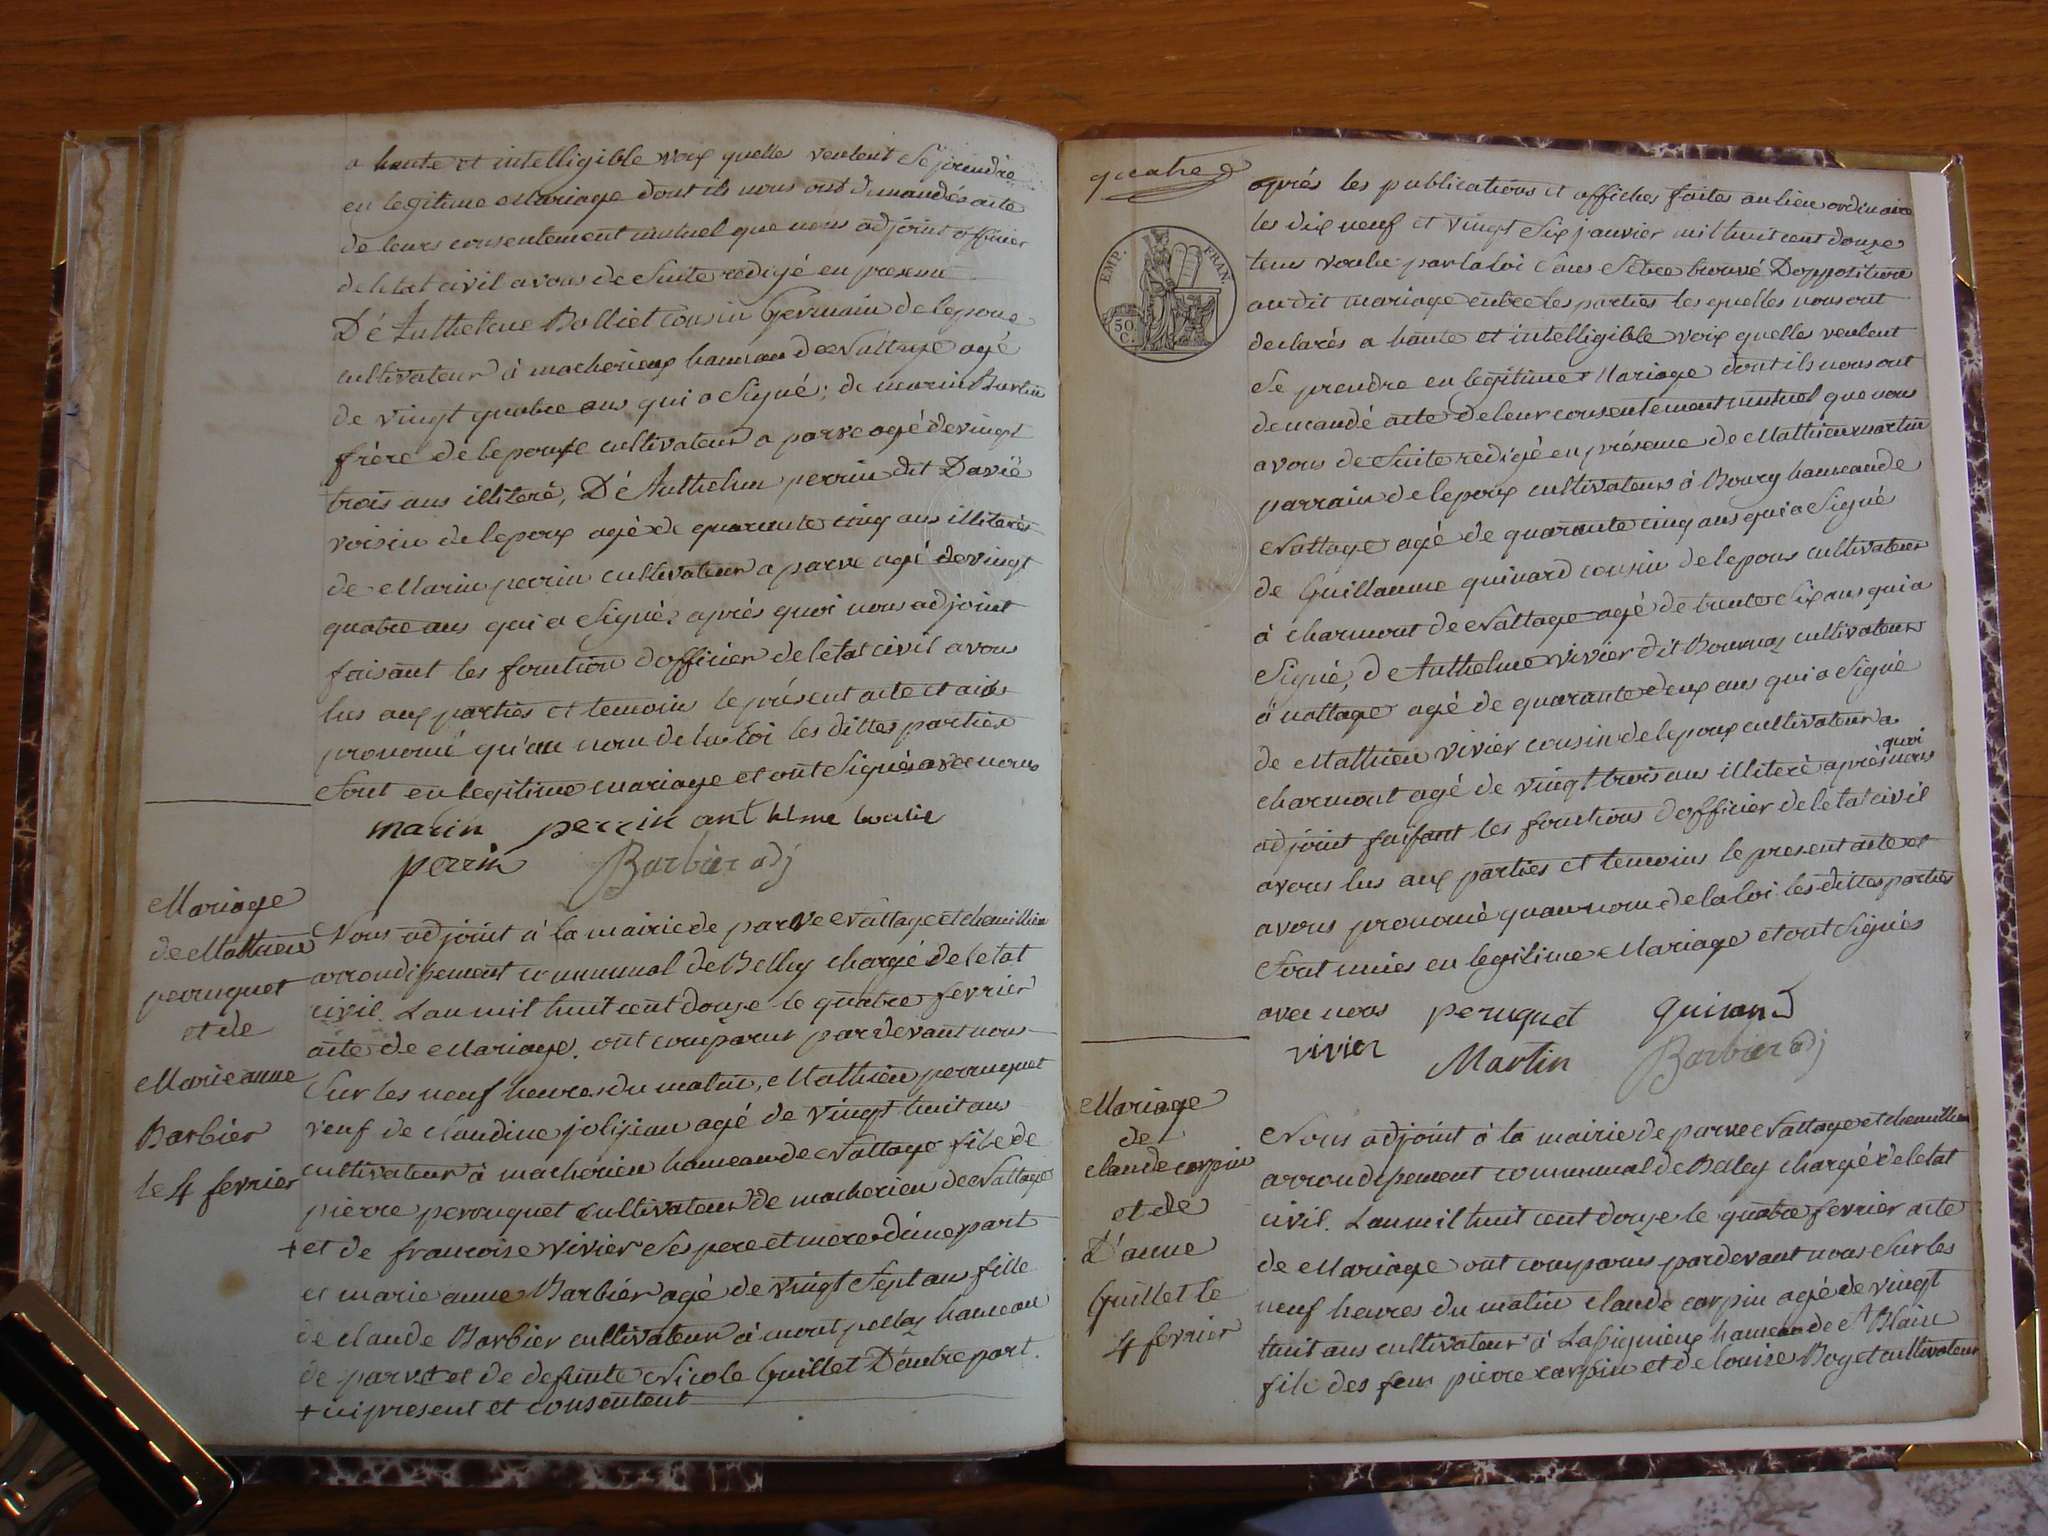 a haute et intelligible voix quelles veulent Se prendre
en legitime Mariage dont ils nous ont demandés acte
de leurs consentement mutuel que nous adjoint officier
de letat civil avons de Suite redigé en presence
D'Anthelme Bolliet cousin Germain de lepoux
cultivateur à macherieux hameau de Nattage agé
de vingt quatre ans qui a Signé; de marin Burtin
frère de lepouse cultivateur a parve agé de vingt
trois ans illiteré, D'Anthelme perrin dit Davié
voisin de lepoux agé de quarante cinq ans illiterés
de Marin perrin cultivateur a parve agé de vingt
quatre ans qui a Signé, après quoi nous adjoint
faisant les fonction d'officier de letat civil avons
lus aux parties et temoin le présent acte et avons
prononcé qu'au nom de la loi les dittes parties
Sont en legitime mariage et ont Signés avec nous
marin perrin anthelme
perrin Barbier adj
Mariage
de Mathieu
perruquet
et de
Marie anne
Barbier
le 4 fevrier
Nous adjoint à la mairie de parve Nattage et chemillieu
arrondissement communal de Belley chargé de letat
civil. Lan mil huit cent douze le quatre fevrier
acte de Mariage. ont comparus pardevant nous
Sur les neuf heures du matin, Mathieu perruquet
veuf de claudine jolijean agé de vingt huit ans
cultivateur à macherieu hameau de Nattage fils de
pierre perouquet cultivateur de macherieu de Nattage
+ et de francoise vivier Ses pere et mere d'une part
et marie anne Barbier agé de vingt Sept ans fille
de claude Barbier cultivateur à mont pellaz hameau
de parve et de defunte Nicole Guillet D'autre part.
+ ici present et consentent
quatre
EMP. FRAN.
50 C.
après les publications et affiches faites au lieu ordinaire
les dix neuf et vingt Six janvier mil huit cent douze
tems voulu par la loi Sans Setre trouvé D'opposition
audit mariage entre les parties les quelles nous ont
declarés a haute et intelligible voix quelles veulent
Se prendre en legitime Mariage dont ils nous ont
demandé acte de leur consentement mutuel que nous
avons de Suite redigé en présence de Mathieu martin
parrain de lepoux cultivateur à Bourg hameau de
Nattage agé de quarante cinq ans qui a Signé
de Guillaume quinard cousin de lepoux cultivateur
à charmont de Nattage agé de trente Six ans qui a
Signé, d'Anthelme vivier dit cultivateur
à nattage agé de quarante deux ans qui a Signé
de Mathieu vivier cousin de lepoux cultivateur a
charmont agé de vingt trois ans illiteré après quoi nous
adjoint faisant les fonctions d'officier de letat civil
avons lus aux parties et temoins le present acte et
avons prononcé quau nom de la loi les dittes parties
Sont unies en legitime Mariage et ont Signés
avec nous peruquet quinard
vivier Martin Barbier adj
Mariage
de
claude carpin
et de
D'anne
Guillet le
4 fevrier
Nous adjoint à la mairie de parve Nattage et chemillieu
arrondissement communal de Belley chargé de letat
civil. Lan mil huit cent douze le quatre fevrier acte
de Mariage ont comparus pardevant nous Sur les
neuf heures du matin claude carpin agé de vingt
huit ans cultivateur à Lassignieux hameau de St Blain
fils des feus pierre carpin et de louise Boget cultivateur